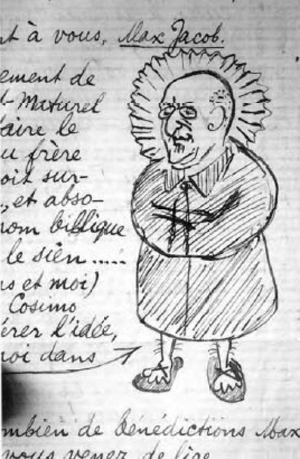 nt à vous, Max Jacob.
ement de
t-Maturel
aire le
u frère
oit sur-
, et abso-
nom biblique
le sien .....
ns et moi)
Cosimo
érer l'idée,
moi dans
mbien de bénédictions Max
vous venez de lire